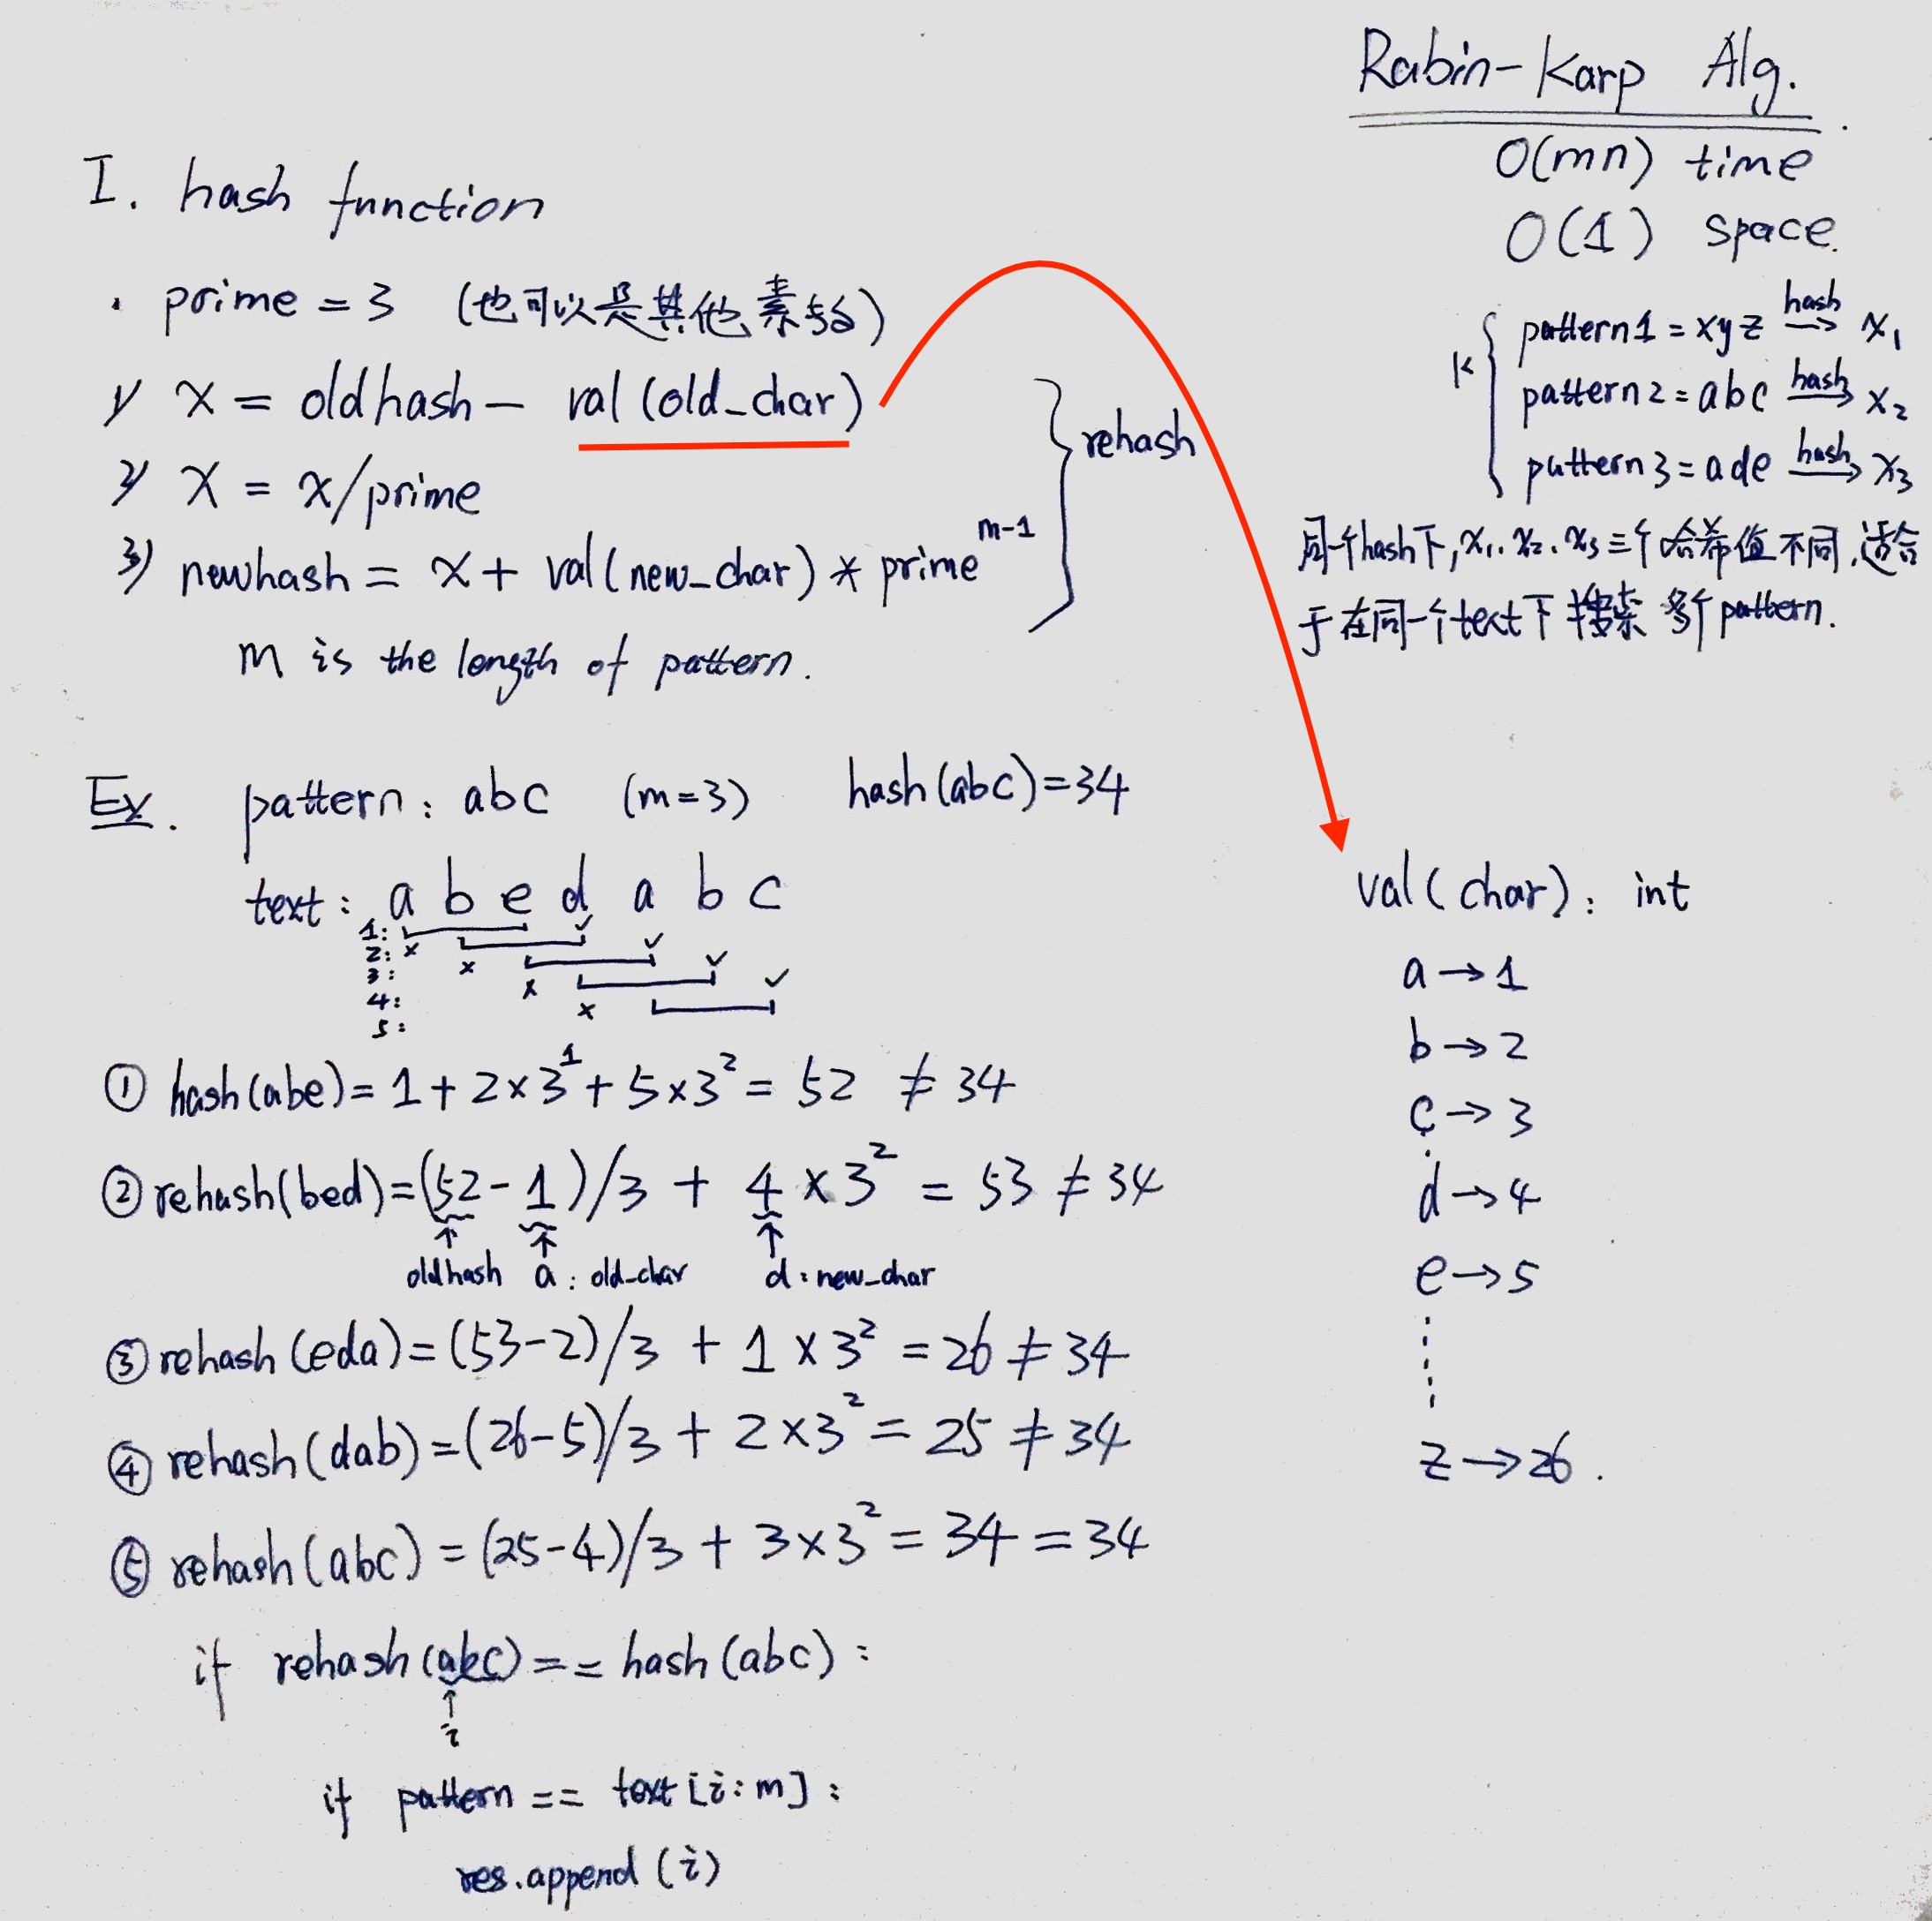 Rabin-Karp Alg.
O(mn) time
O(1) space.
I. hash function
· prime = 3 (也可以是其他素数)
1) x = oldhash - val(old_char)
2) x = x/prime
3) newhash = x + val(new_char) * prime^m-1
rehash
m is the length of pattern.
K
pattern1 = xyz hash→ x₁
pattern2 = abc hash→ x₂
pattern3 = ade hash→ x₃
同一个hash下,x₁、x₂、x₃三个哈希值不同,适合
于在同一个text下搜索多个pattern.
Ex. pattern: abc (m=3) hash(abc)=34
text: a b e d a b c
1:
2: x ✓
3: x ✓
4: x ✓
5: x ✓
① hash(abe) = 1 + 2×3¹ + 5×3² = 52 ≠ 34
② rehash(bed) = (52-1)/3 + 4×3² = 53 ≠ 34
↑ ↑ ↑
oldhash a: old_char d: new_char
③ rehash(eda) = (53-2)/3 + 1×3² = 26 ≠ 34
④ rehash(dab) = (26-5)/3 + 2×3² = 25 ≠ 34
⑤ rehash(abc) = (25-4)/3 + 3×3² = 34 = 34
if rehash(abc) == hash(abc):
↑
i
if pattern == text[i:m]:
res.append(i)
val(char): int
a→1
b→2
c→3
d→4
e→5
z→26.